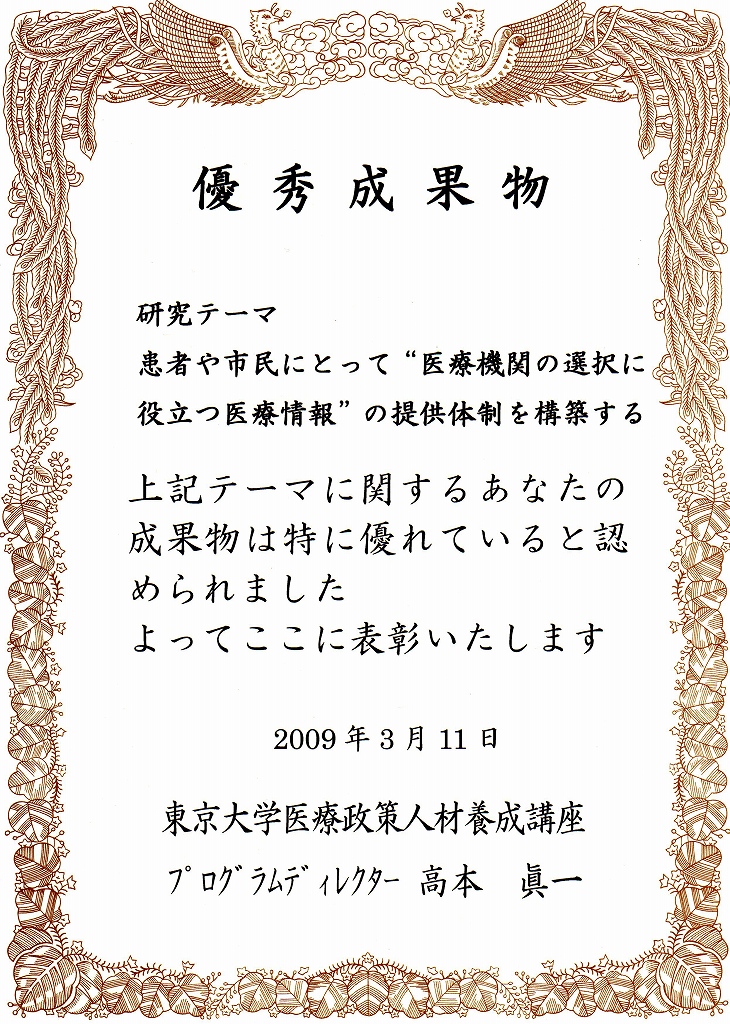 優秀成果物
研究テーマ
患者や市民にとって“医療機関の選択に
役立つ医療情報”の提供体制を構築する
上記テーマに関するあなたの
成果物は特に優れていると認
められました
よってここに表彰いたします
2009年3月11日
東京大学医療政策人材養成講座
プログラムディレクター 高本 眞一